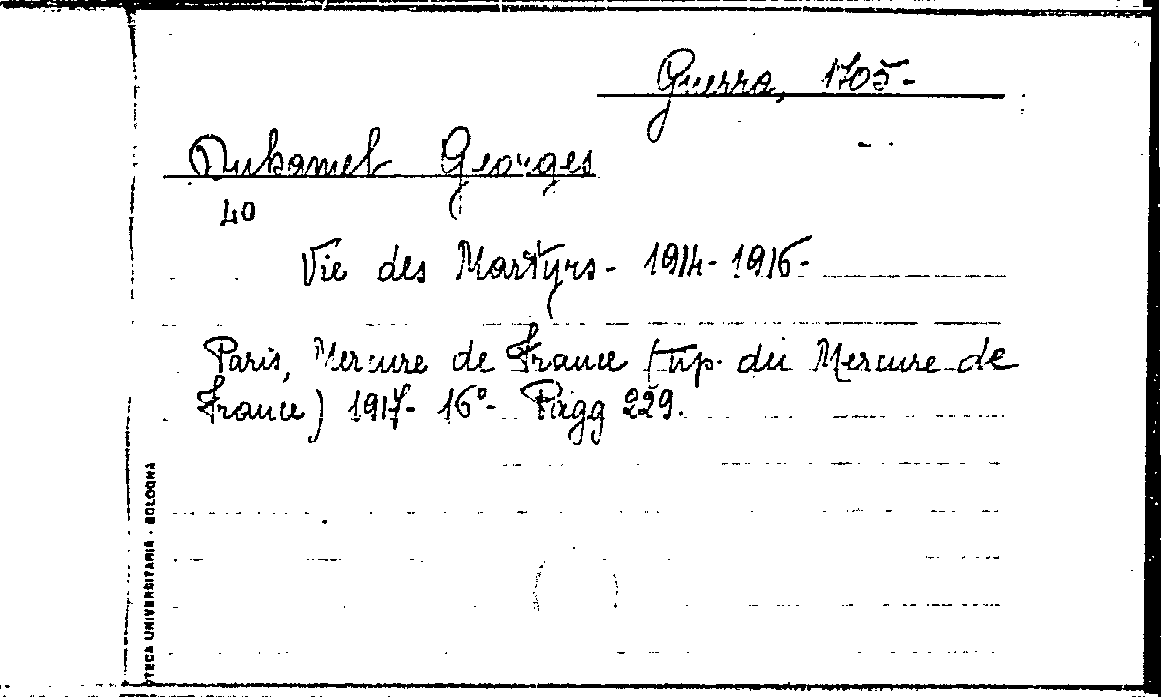 Guerra, 1705-
Duhamel Georges
40
Vie des Martyrs- 1914-1916-
Paris, Mercure de France (tip. du Mercure de
France) 1917- 16°- Pagg 229.
OTECA UNIVERSITARIA - BOLOGNA